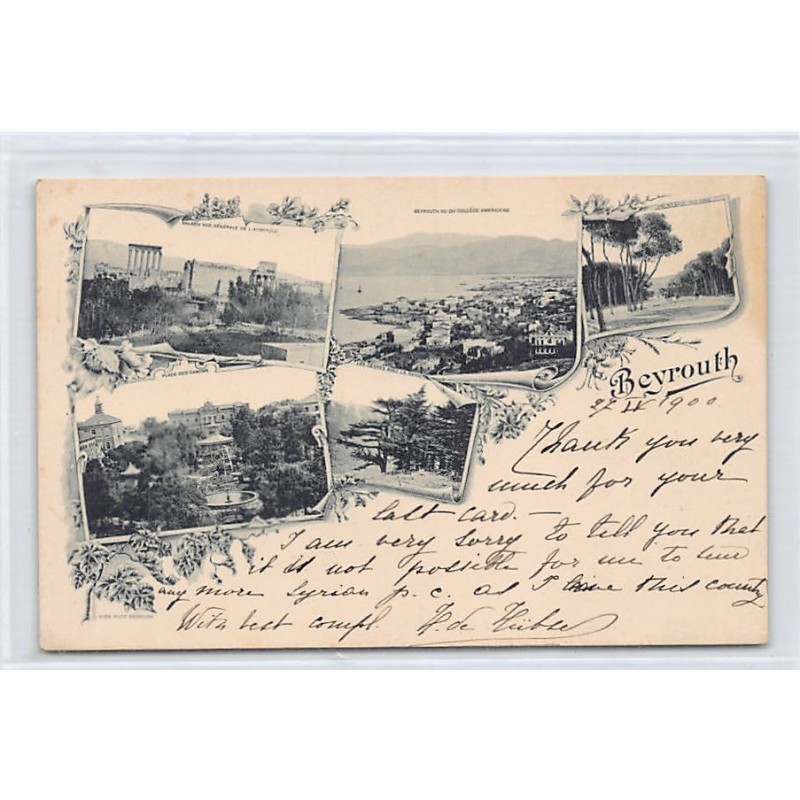 BAALBEK VUE GÉNÉRALE DE L'ACROPOLE
BEYROUTH VU DU COLLÈGE AMÉRICAINE
PLACE DES CANONS
Beyrouth
27 IX 1900
Thank you very
much for your
last card. —
I am very sorry to tell you that
it is not possible for me to send
any more Syrian p.c. as I leave this country
With best compl. H. de